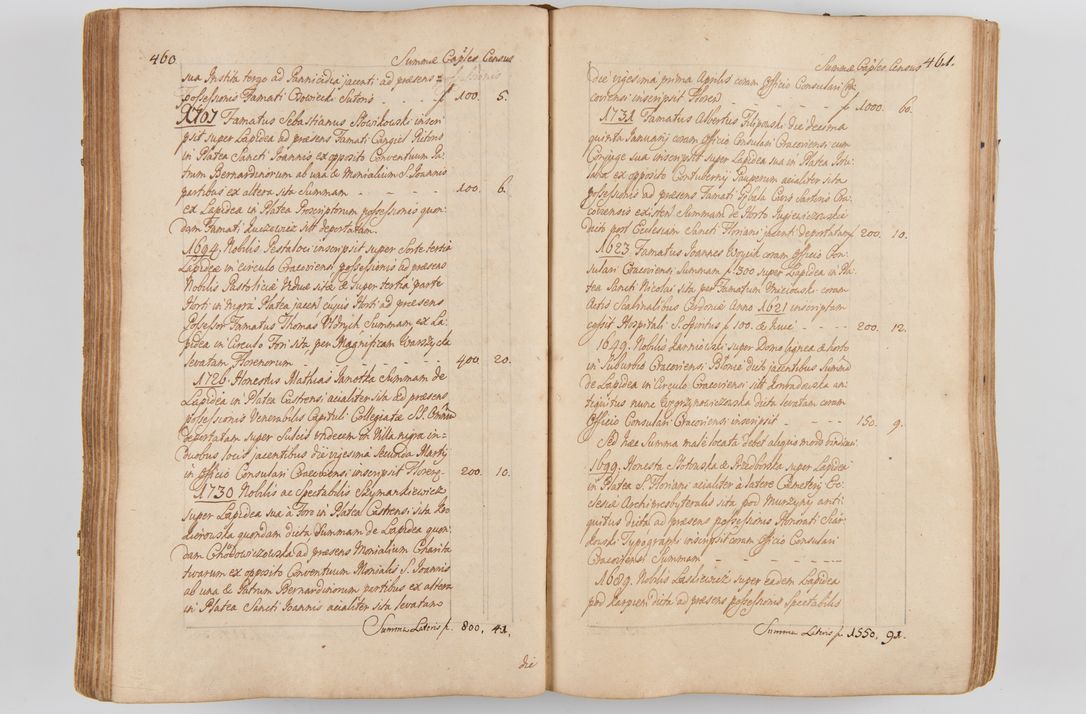 460
Summæ Capłes Census
sua Instita tergo ad Pannicidia jacenti ad præsens
possessionis Famati Osowiecki Sutoris - - - f 100. 5.
1707 Famatus Sebastianus Słowikowski inscri
psit super Lapidea ad præsens Famati
in Platea Sancti Joannis ex opposito Conventuum Pa-
trum Bernardinorum ab una & Monialium S. Joannis
partibus ex altera sita Summam - - - 100. 6.
ex Lapidea in Platea Proscriptorum possessionis quon-
dam Famati sit deportatam.
1694 Nobilis Pestaloci inscripsit super Sorte tertia
Lapideæ in Circulo Cracoviensi possessionis ad præsens
Nobilis Viduæ sitæ & super tertia parte
Horti in nigra Platea jacen. cujus Horti ad præsens
Possessor Famatus Thomas Summam ex La-
pidea in Circulo Fori sita per Magnificam
levatam Florenorum - - - 400. 20.
1726 Honestus Mathias Janotka Summam de
Lapidea in Platea Castrensi acialiter sita ad præsens
possessionis Venerabilis Capituli Collegiatæ SS. Omnium
deportatam super Sulcis undecem in Villa nigra in
duobus locis jacentibus die vigesima secunda Martij
in Officio Consulari Cracoviensi inscripsit Floreng 200. 10.
1730 Nobilis ac Spectabilis Szymankiewicz
super Lapidea sua à Foro in Platea Castrensi sita
quondam dicta Summam de Lapidea quon-
dam Chodowiczowska ad præsens Monialium Charita
tivarum ex opposito Conventuum Monialis S. Joannis
ab una & Patrum Bernardinorum partibus ex altera
in Platea Sancti Joannis acialiter sita levatam
Summa Lateris f. 800, 41.
die
Summæ Caples Census 461.
die vigesima prima Aprilis coram Officio Consulari Cra
coviensi inscripsit Floren - - - f 1000. 60.
1731 Famatus Albertus Filipowski die decima
quinta Januarij coram Officio Consulari Cracoviensi cum
Conjuge sua inscripsit super Lapidea sua in Platea
ex opposito Contubernij Pauperum acialiter sita
possessionis ad præsens Famati Civis Sartoris Cra-
coviensis existen. Summam de Horto
dicto post Ecclesiam Sancti Floriani jacenti deportatam 200. 10.
1623 Famatus Joannes Woycik coram Officio Con
sulari Cracoviensi Summam f 300 super Lapidea in Pla
tea Sancti Nicolai sita per Famatum coram
Actis Scabinalibus Anno 1621 inscriptam
cessit Hospitali S. Spiritus f 100. & huic - - - 200. 12.
1629. Nobilis super Domo lignea & horto
in Suburbio Cracoviensi Błonie dicto jacentibus Summã
de Lapidea in Circulo Cracoviensi sita Konradowska an
tiquitus nunc dicta levatam coram
Officio Consulari Cracoviensi inscripsit - - - 150. 9.
Sed hæc Summa male locata debet aliquo modo vindicari
1699. Honesta Słotowska & Przedborska super Lapidea
in Platea S. Floriani acialiter à latere Cæmeterij Ec-
clesiæ Archipresbyteralis sita pod Murzyny anti-
quitus dicta ad præsens possessionis Honorati
Typographi inscripsit coram Officio Consulari
Cracoviensi Summam - - -
1689. Nobilis Laskiewicz super eadem Lapidea
pod dicta ad præsens possessionis Spectabilis
Summa Lateris f 1550, 91.